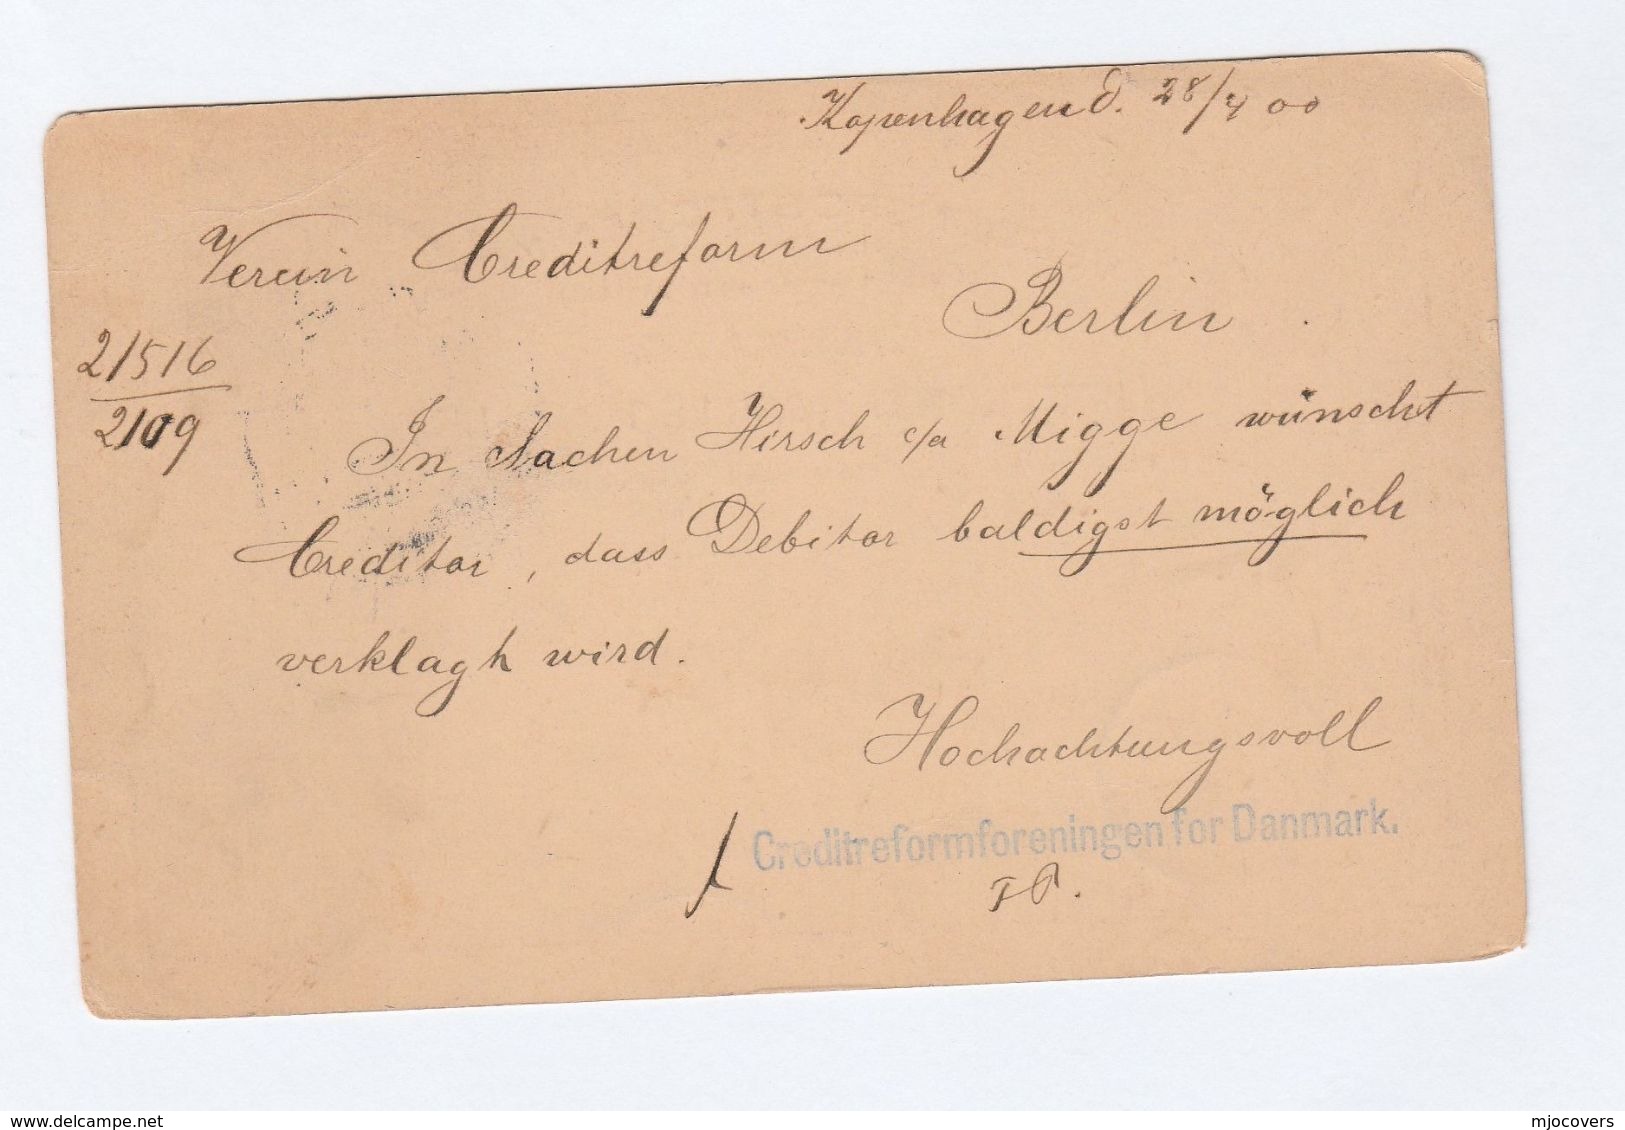 Kopenhagen d. 28/4 00
Verein Creditreform
Berlin
21516
2109
In Sachen Hirsch c/a Migge wünscht
Creditor, dass Debitor baldigst möglich
verklagh wird.
Hochachtungsvoll
Creditreformforeningen for Danmark.
mjocovers